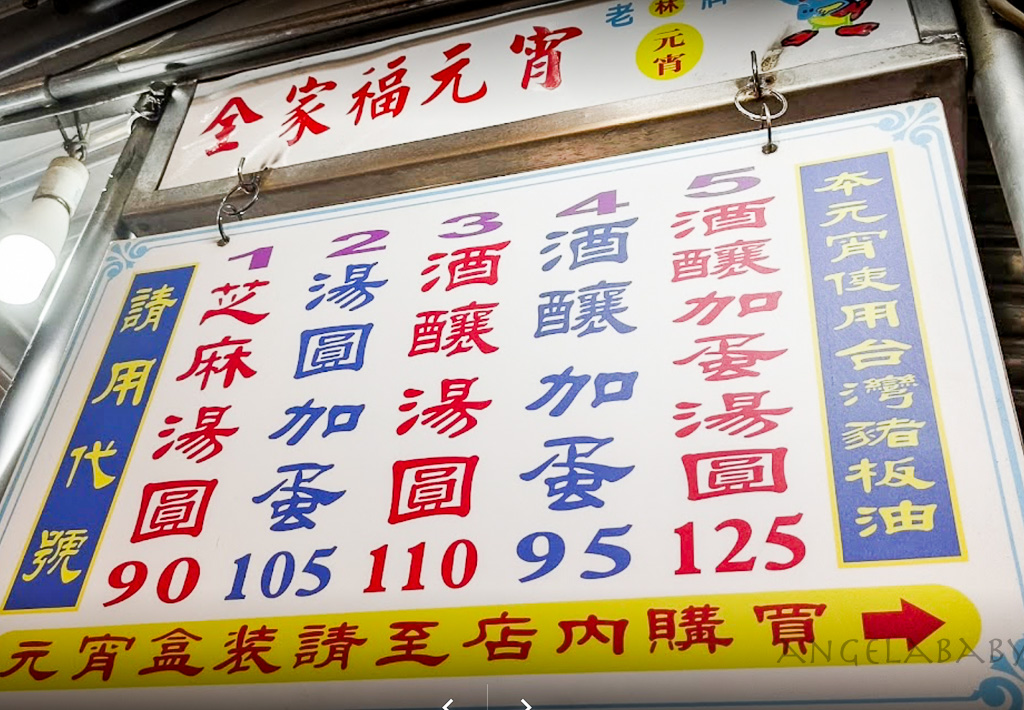 全家福元宵
老林牌
元宵
請用代號
1 芝麻湯圓 90
2 湯圓加蛋 105
3 酒釀湯圓 110
4 酒釀加蛋 95
5 酒釀加蛋湯圓 125
本元宵使用台灣豬板油
元宵盒裝請至店內購買
ANGELABABY